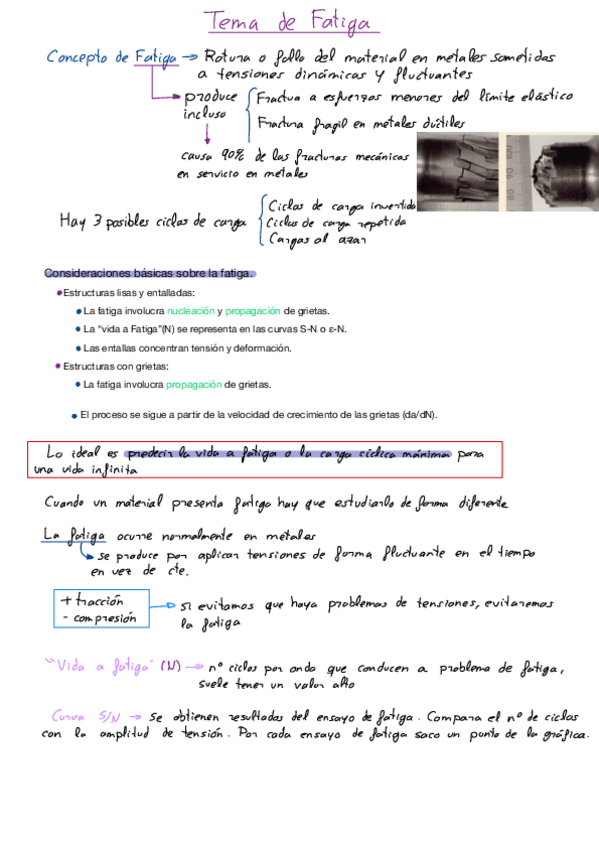 Tema de Fatiga
Concepto de Fatiga → Rotura o fallo del material en metales sometidos
a tensiones dinámicas y fluctuantes
produce
incluso
Fractura a esfuerzos menores del límite elástico
Fractura fragil en metales dúctiles
causa 90% de las fracturas mecánicas
en servicio en metales
Hay 3 posibles ciclos de carga
Ciclos de carga invertida
Ciclos de carga repetida
Cargas al azar
80 90 100
Consideraciones básicas sobre la fatiga.
•Estructuras lisas y entalladas:
•La fatiga involucra nucleación y propagación de grietas.
•La “vida a Fatiga”(N) se representa en las curvas S-N o ε-N.
•Las entallas concentran tensión y deformación.
•Estructuras con grietas:
•La fatiga involucra propagación de grietas.
•El proceso se sigue a partir de la velocidad de crecimiento de las grietas (da/dN).
Lo ideal es predecir la vida a fatiga o la carga cíclica máxima para
una vida infinita
Cuando un material presenta fatiga hay que estudiarlo de forma diferente
La fatiga ocurre normalmente en metales
se produce por aplicar tensiones de forma fluctuante en el tiempo
en vez de cte.
+ tracción
- compresión
si evitamos que haya problemas de tensiones, evitaremos
la fatiga
"Vida a fatiga" (N) → nº ciclos por onda que conducen a problema de fatiga,
suele tener un valor alto
Curva S/N → Se obtienen resultados del ensayo de fatiga. Compara el nº de ciclos
con la amplitud de tensión. Por cada ensayo de fatiga saco un punto de la gráfica.